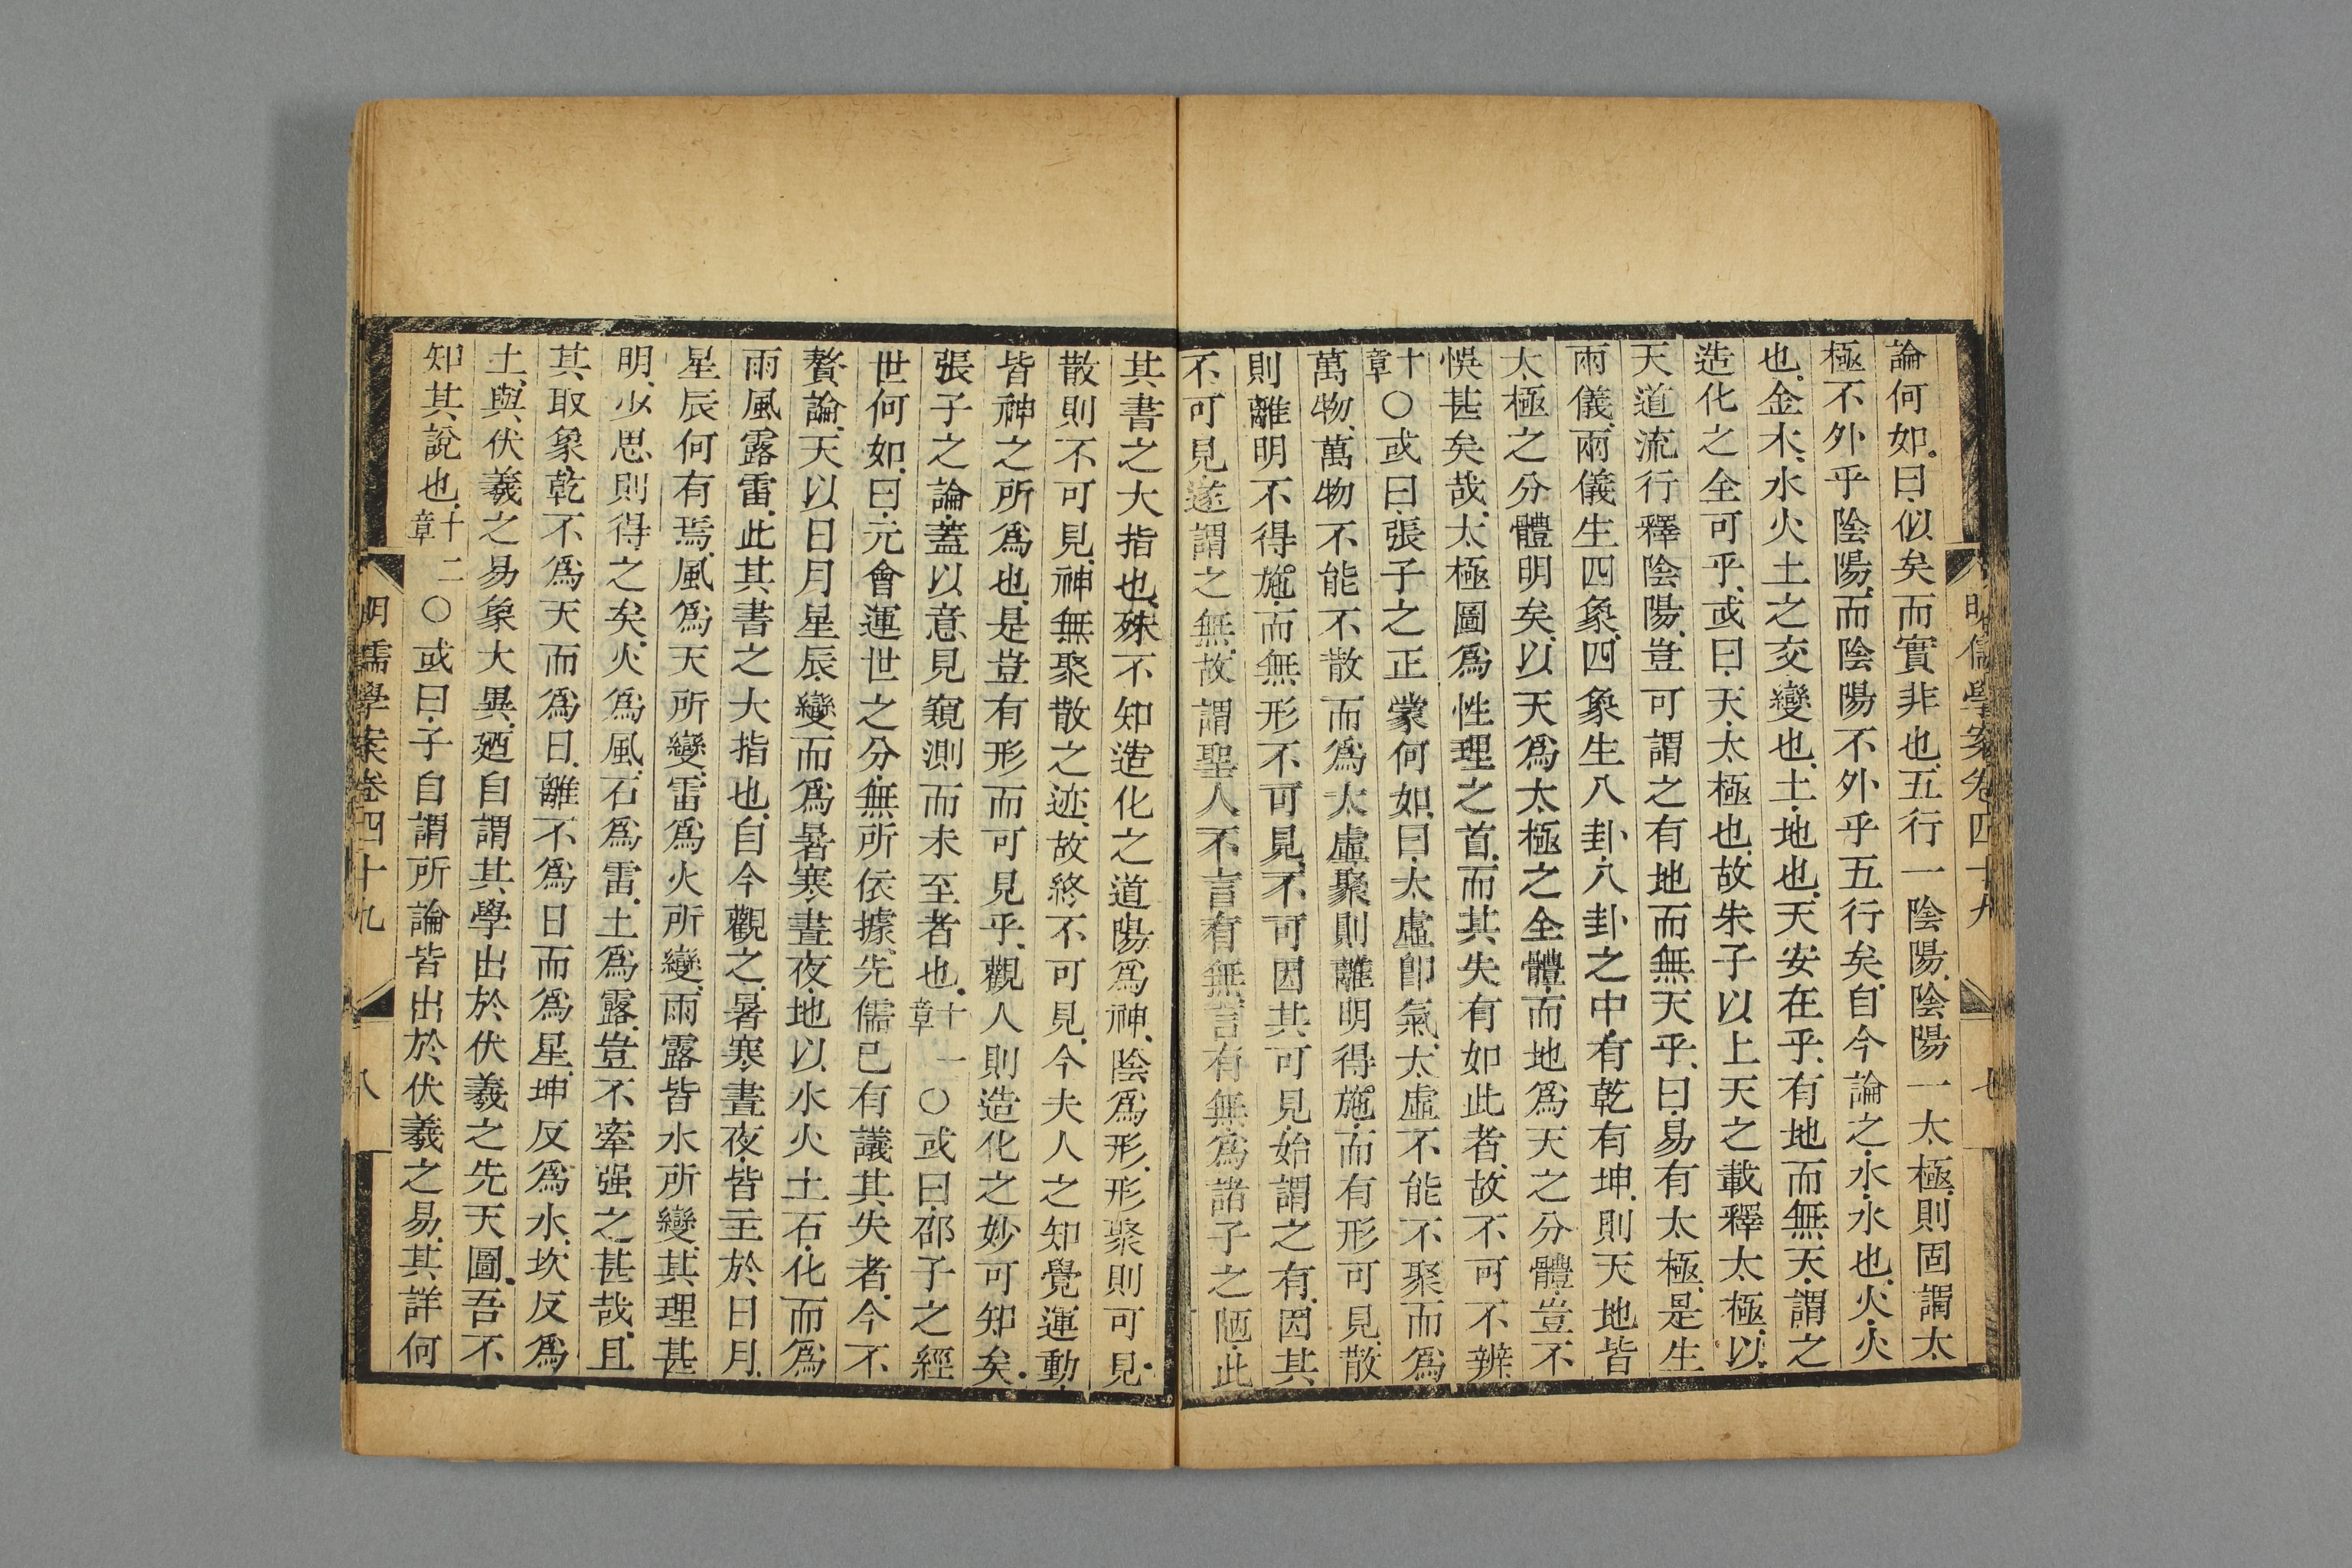 明儒學案卷四十九
七
論何如.曰.似矣而實非也.五行一陰陽.陰陽一太極.則固謂太
極不外乎陰陽.而陰陽不外乎五行矣.自今論之.水.水也.火.火
也.金木.水火土之交變也.土.地也.天安在乎.有地而無天.謂之
造化之全可乎.或曰.天.太極也.故朱子以上天之載釋太極.以
天道流行釋陰陽.豈可謂之有地而無天乎.曰.易有太極.是生
兩儀.兩儀生四象.四象生八卦.八卦之中.有乾有坤.則天地皆
太極之分體明矣.以天爲太極之全體.而地爲天之分體.豈不
悞甚矣哉.太極圖爲性理之首.而其失有如此者.故不可不辨
十章○或曰.張子之正蒙何如.曰.太虛卽氣.太虛不能不聚而爲
萬物.萬物不能不散而爲太虛.聚則離明得施.而有形可見.散
則離明不得施.而無形不可見.不可因其可見.始謂之有.因其
不可見遂謂之無.故謂聖人不言有無.言有無爲諸子之陋.此
其書之大指也.殊不知造化之道.陽爲神.陰爲形.形聚則可見.
散則不可見.神無聚散之迹.故終不可見.今夫人之知覺運動.
皆神之所爲也.是豈有形而可見乎.觀人則造化之妙可知矣.
張子之論.蓋以意見窺測而未至者也.十一章○或曰.邵子之經
世何如.曰.元會運世之分.無所依據.先儒已有議其失者.今不
贅論.天以日月星辰.變而爲暑寒晝夜.地以水火土石.化而爲
雨風露雷.此其書之大指也.自今觀之.暑寒晝夜.皆主於日月.
星辰何有焉.風爲天所變.雷爲火所變.雨露皆水所變.其理甚
明.少思則得之矣.火爲風.石爲雷.土爲露.豈不牽强之甚哉.且
其取象.乾不爲天而爲日.離不爲日而爲星.坤反爲水.坎反爲
土.與伏羲之易象大異.廼自謂其學出於伏羲之先天圖.吾不
知其說也.十二章○或曰.子自謂所論皆出於伏羲之易.其詳何
明儒學案卷四十九
八